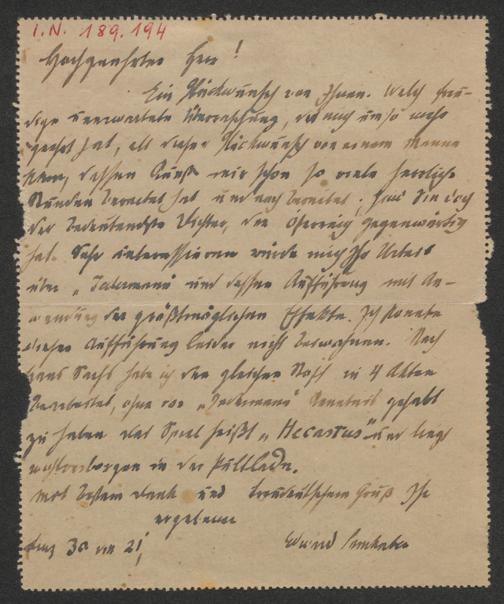 I.N. 189.194
Hochgeehrter Herr!
Ein Glückwunsch von Ihnen. Welch freu-
dige unerwartete Überraschung, die mich umso mehr
geehrt hat, als dieser Glückwunsch von einem Manne
kam, dessen Kunst mir schon so viele herrliche
Stunden bereitet hat und noch bereitet; sind Sie doch
der bedeutendste Dichter, den Österreich gegenwärtig
hat. Sehr interessieren würde mich Ihr Urteil
über "Jedermann" und dessen Aufführung mit An-
wendung der größtmöglichen Effekte. Ich konnte
dieser Aufführung leider nicht beiwohnen. Nach
Hans Sachs habe ich den gleichen Stoff in 4 Akten
bearbeitet, ohne von "Jedermann" Kenntnis gehabt
zu haben das Spiel heißt "Hecastus" und liegt
wohlverborgen in der Pultlade.
Mit bestem Dank und treudeutschem Gruß Ihr
ergebener
30 21